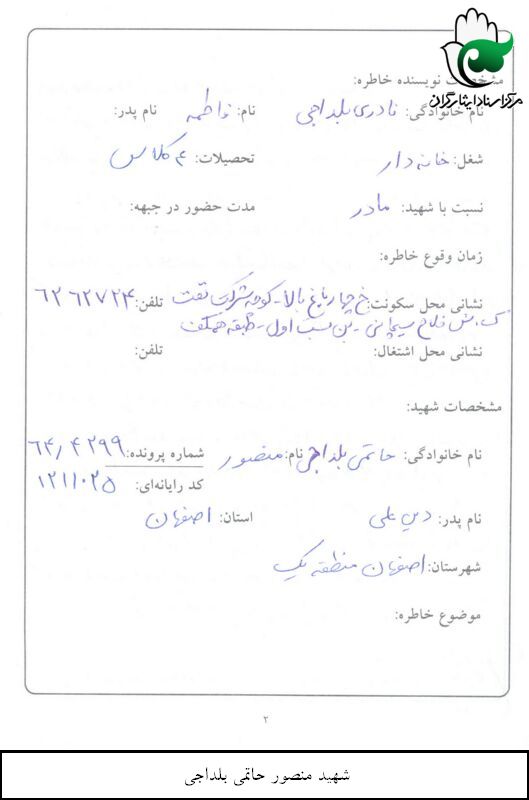 مرکز اسناد ایثارگران
مشخصات نویسنده خاطره:
نام خانوادگی: نادری بلداجی نام: فاطمه نام پدر:
شغل: خانه دار تحصیلات: ۴ کلاس
نسبت با شهید: مادر مدت حضور در جبهه:
زمان وقوع خاطره:
نشانی محل سکونت: خ چهارباغ بالا - کوچه شرکت نفت تلفن: ۶۲۶۲۷۲۴
ک. ش فلاح - بن بست اول - طبقه همکف
نشانی محل اشتغال: تلفن:
مشخصات شهید:
نام خانوادگی: حاتمی بلداجی نام: منصور شماره پرونده: ۶۴/۴۲۹۹
کد رایانه‌ای: ۱۲۱۱۰۲۵
نام پدر: استان: اصفهان
شهرستان: اصفهان منطقه یک
موضوع خاطره:
۲
شهید منصور حاتمی بلداجی